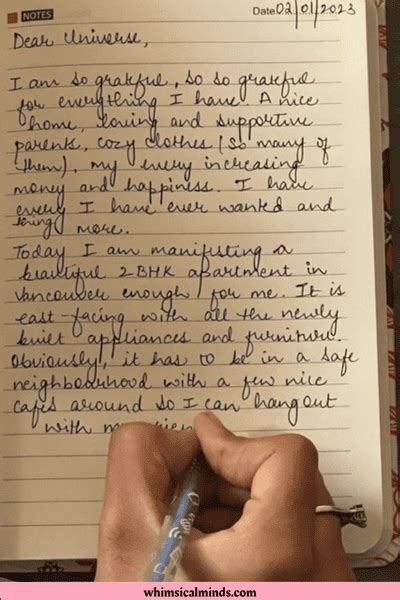 NOTES
Date 02/01/2023
Dear Universe,
I am so grateful, so so grateful
for everything I have. A nice
home, loving and supportive
parents, cozy clothes (so many of
them), my every increasing
money and happiness. I have
every I have ever wanted and
thing more.
Today I am manifesting a
beautiful 2 BHK apartment in
Vancouver enough for me. It is
east-facing with all the newly
built appliances and furniture.
Obviously, it has to be in a safe
neighbourhood with a few nice
cafes around so I can hangout
with
whimsicalminds.com